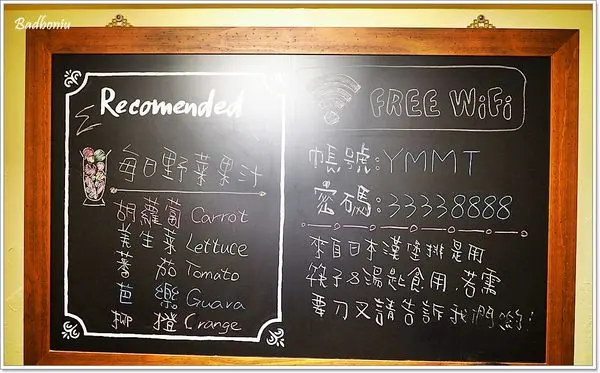 Badboniu
Recomended
每日野菜果汁
胡蘿蔔 Carrot
美生菜 Lettuce
蕃茄 Tomato
芭樂 Guava
柳橙 Orange
FREE WiFi
帳號:YMMT
密碼:33338888
來自日本漢堡排是用
筷子&湯匙食用.若需
要刀叉請告訴我們喲!